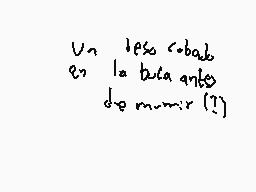 Un beso robado
en la boca antes
de mimir (?)